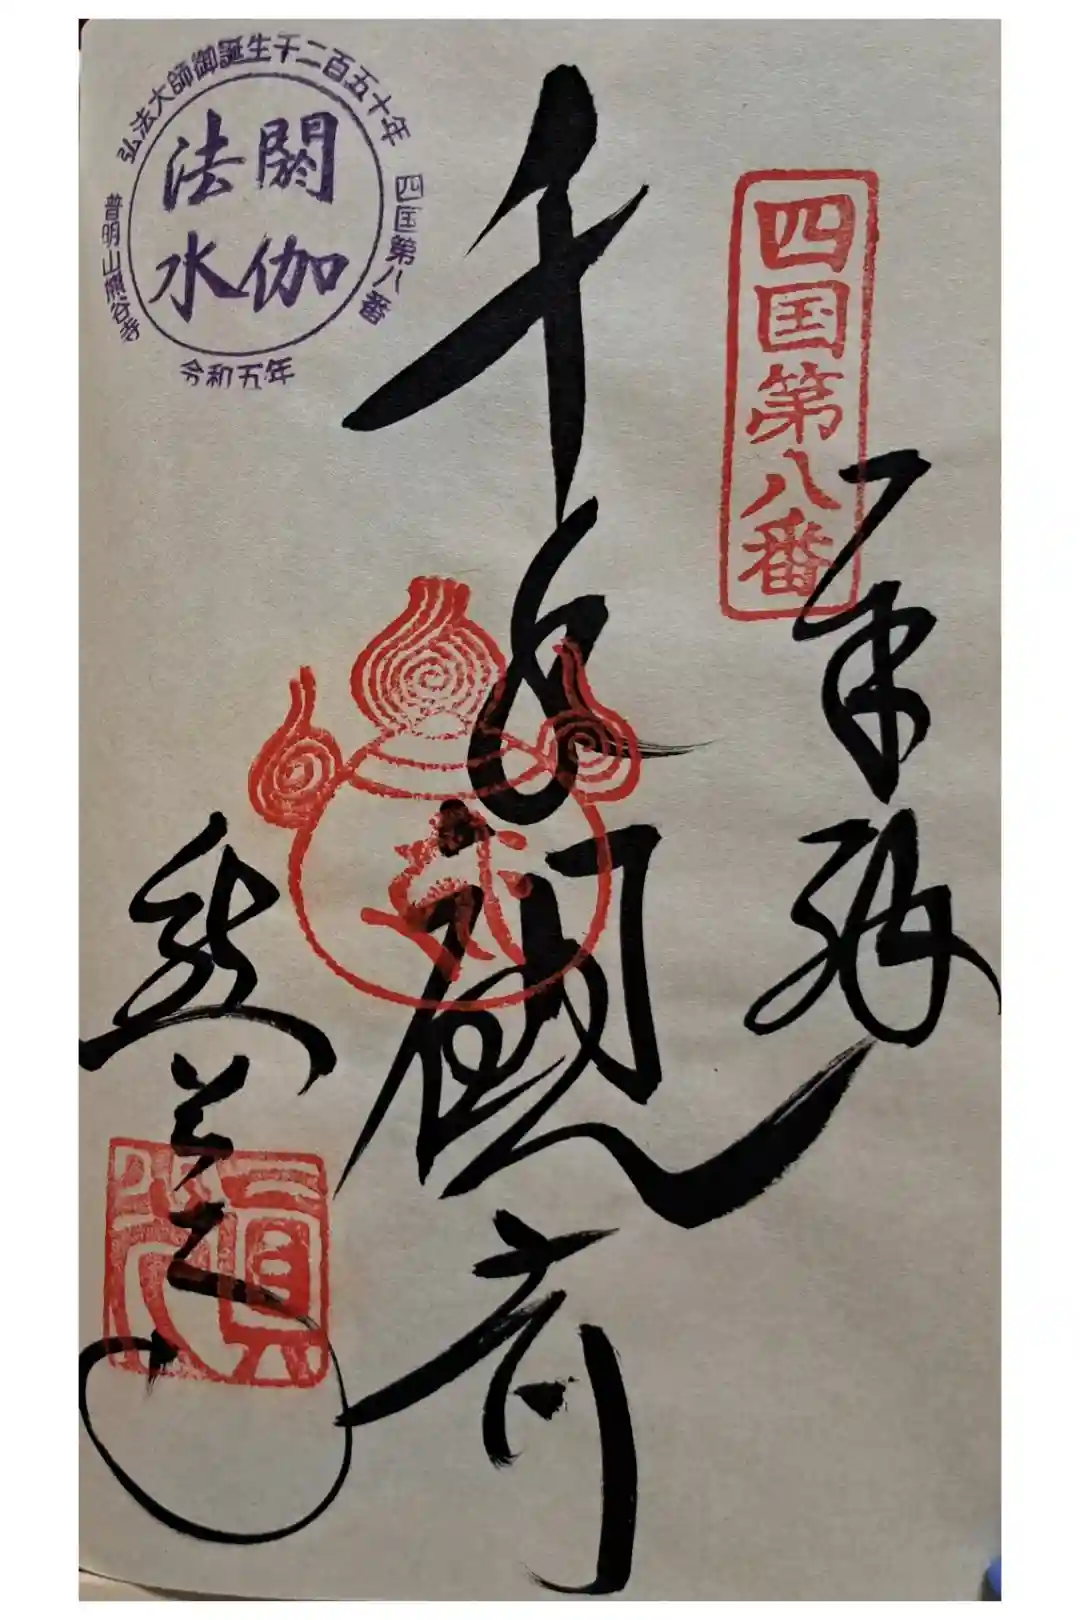 四国第八番
奉拝
千手観音
弘法大師御誕生千二百五十年
四国第八番
閼伽
法水
普明山熊谷寺
令和五年
熊谷寺